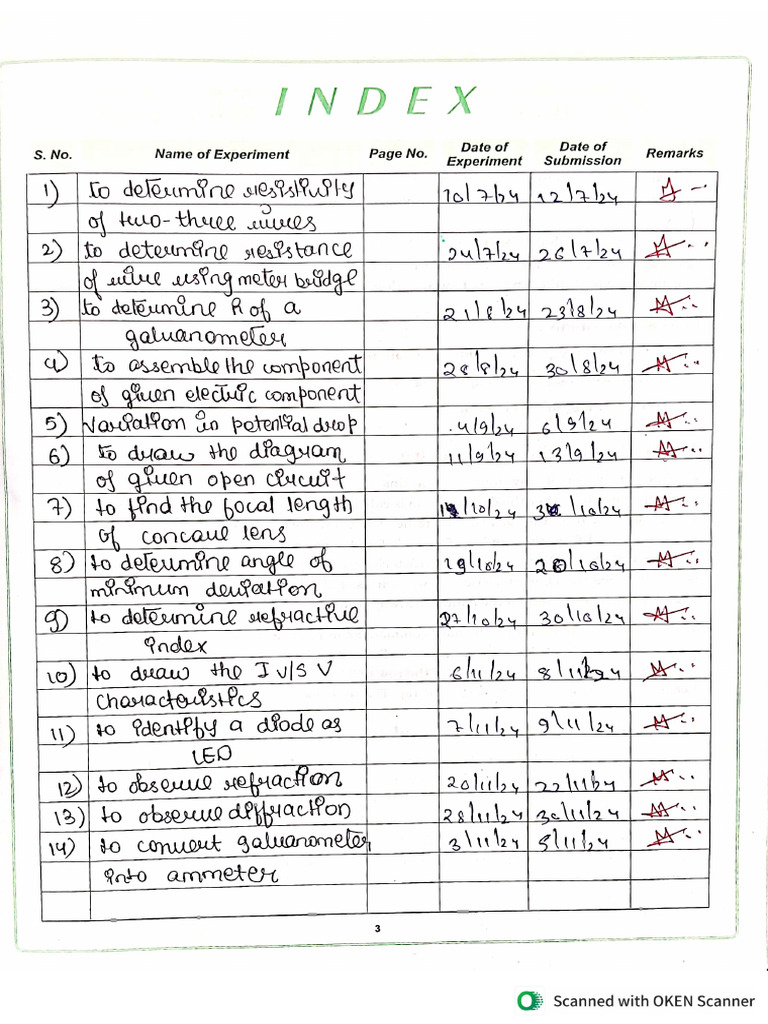 INDEX
S. No. Name of Experiment Page No. Date of Experiment Date of Submission Remarks
1) to determine resistivity 10/7/24 12/7/24
of two-three wires
2) to determine resistance 24/7/24 26/7/24
of wire using meter bridge
3) to determine R of a 21/8/24 23/8/24
galvanometer
4) to assemble the component 28/8/24 30/8/24
of given electric component
5) variation in potential drop 4/9/24 6/9/24
6) to draw the diagram 11/9/24 13/9/24
of given open circuit
7) to find the focal length /10/24 /10/24
of concave lens
8) to determine angle of 19/10/24 20/10/24
minimum deviation
9) to determine refractive 27/10/24 30/10/24
index
10) to draw the I v/s V 6/11/24 8/11/24
characteristics
11) to identify a diode as 7/11/24 9/11/24
LED
12) to observe refraction 20/11/24 22/11/24
13) to observe diffraction 28/11/24 30/11/24
14) to convert galvanometer 3/11/24 5/11/24
into ammeter
3
Scanned with OKEN Scanner